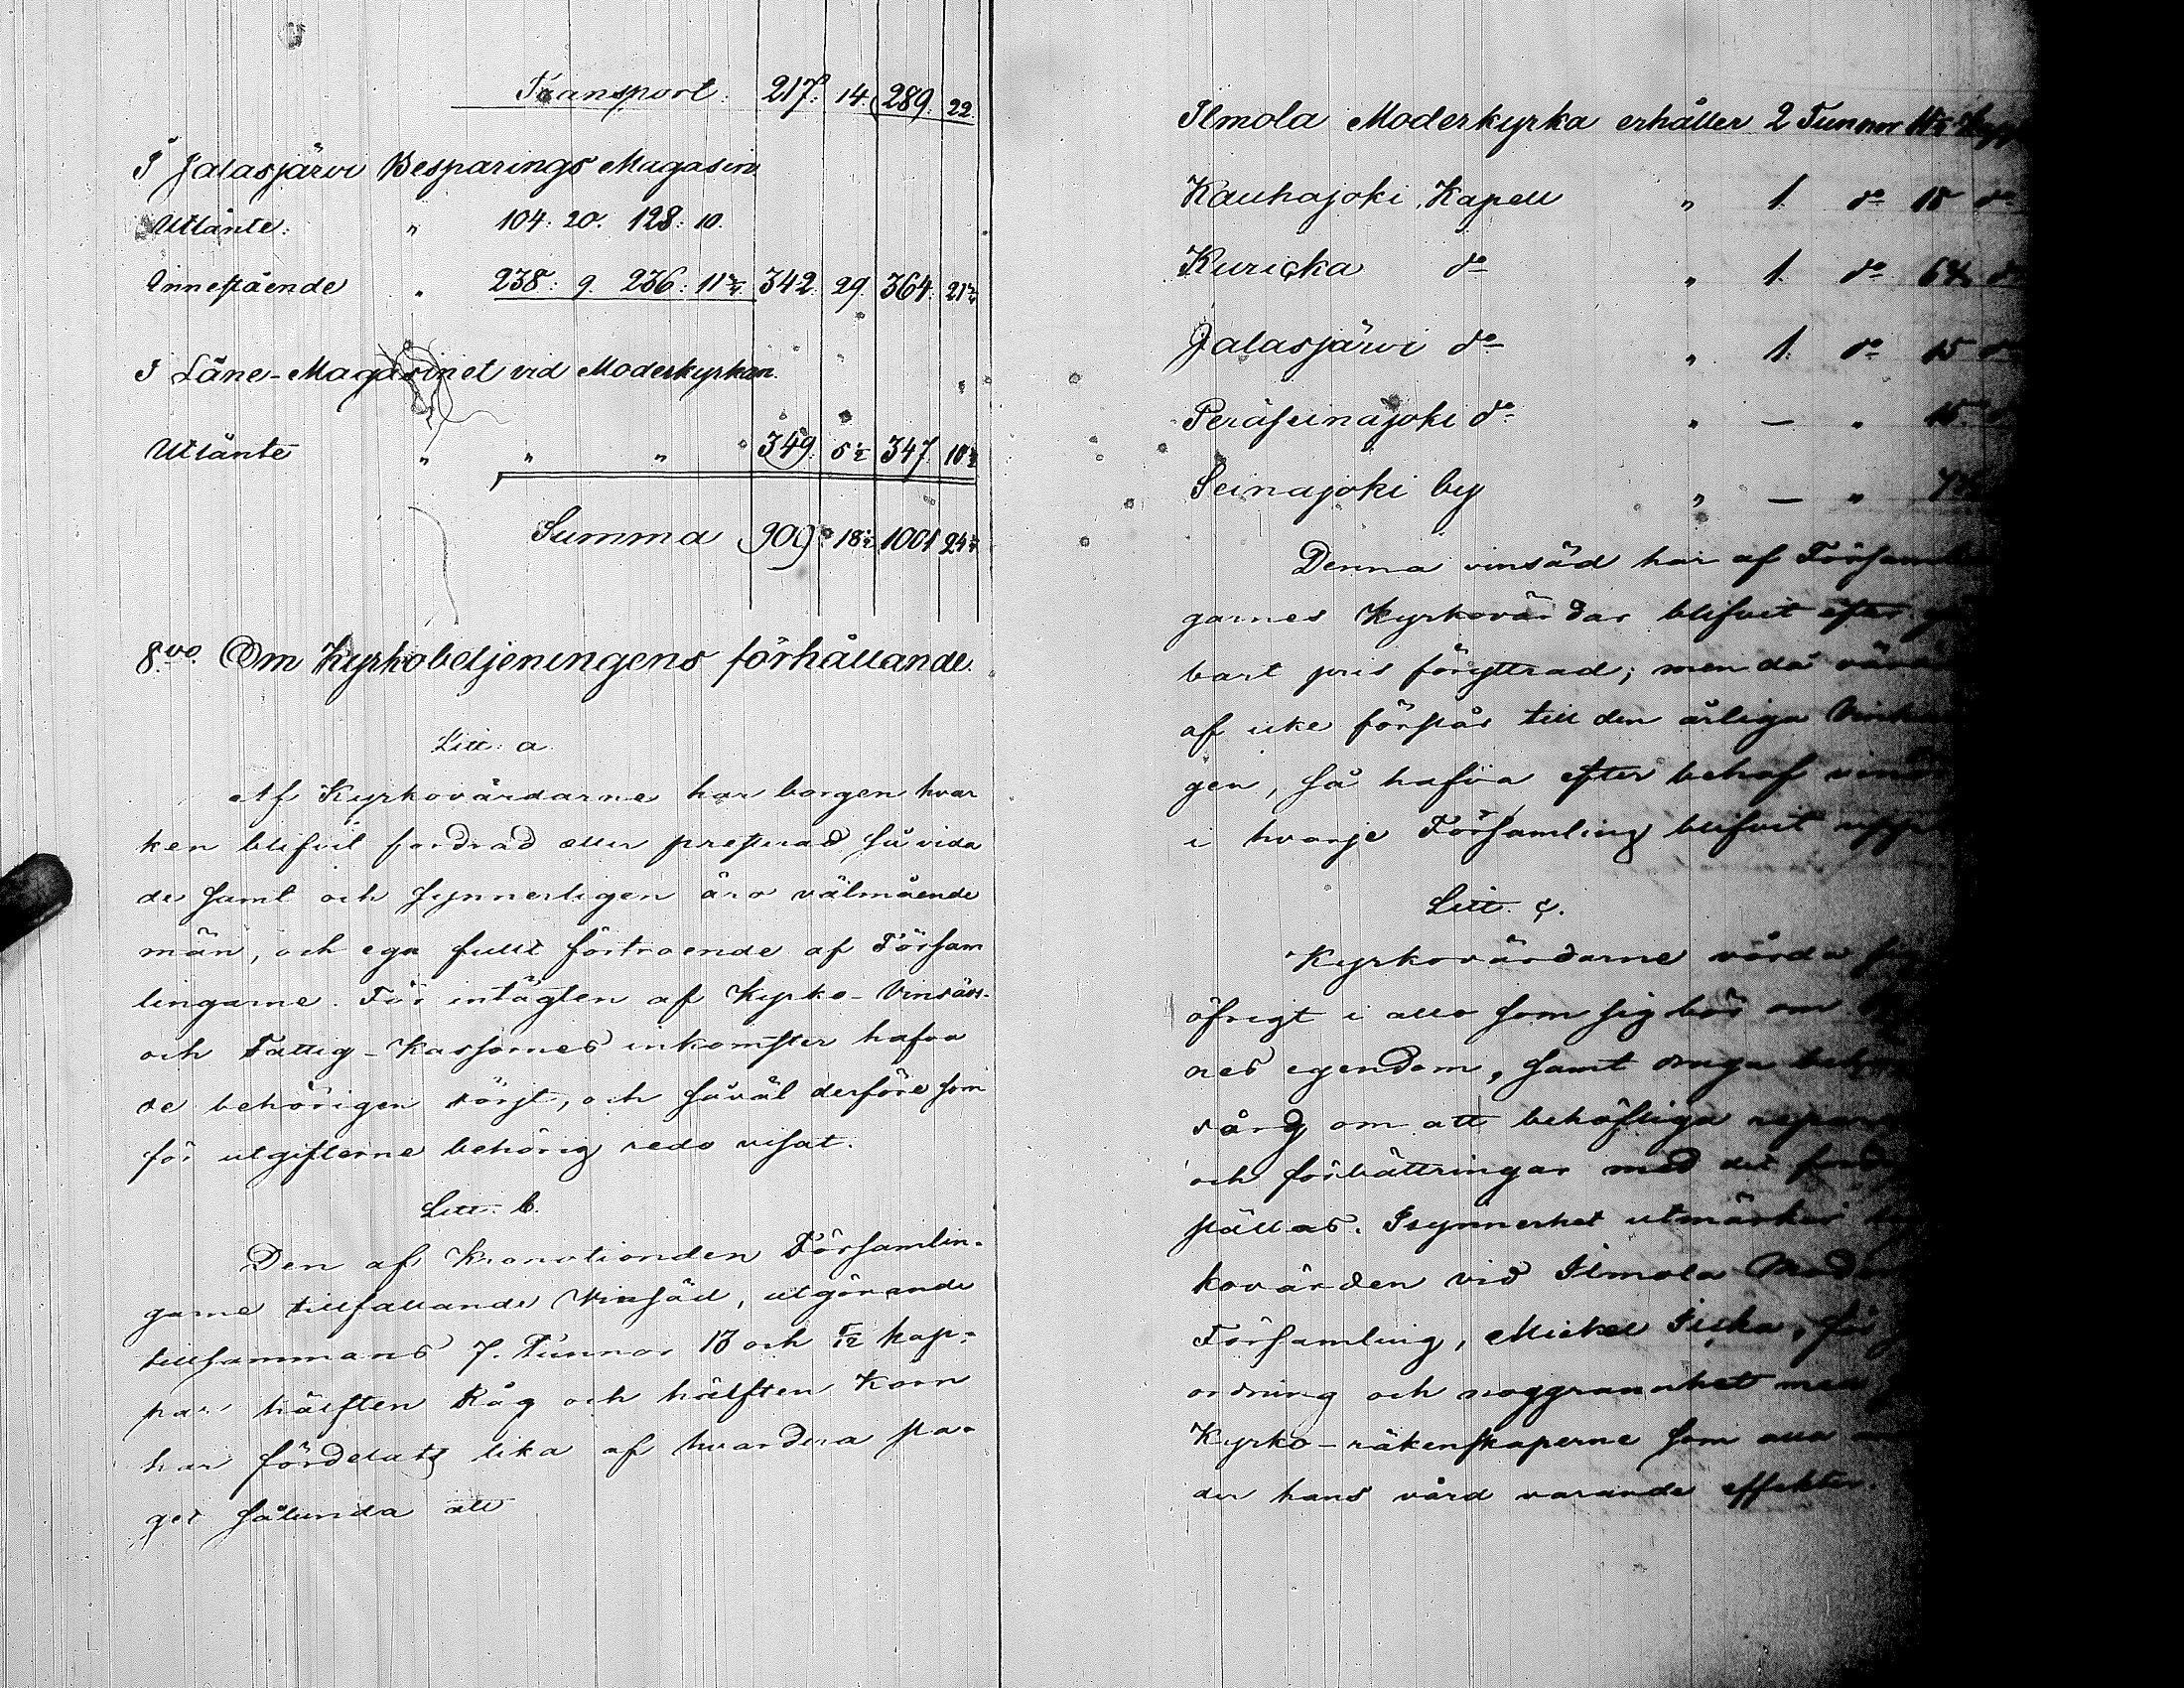 Transport: 217: 14. 289: 22.
I Jalasjärvi Besparings Magasin
Utlånte: " 104: 20. 128: 10.
Innestående " 238: 9. 236: 11¾ 342: 29. 364: 21¾
I Låne-Magasinet vid Moderkyrkan.
Utlånte " " " 349: 5½ 347: 10½
Summa 909: 18½ 1001 24¼
8:vo Om Kyrkobetjeningens förhållande.
Litt: a.
Af Kyrkovårdarne har borgen hvar
ken blifvit fordrad eller presterad så vida
de samt och synnerligen äro välmående
män, och ega fullt förtroende af Försam
lingarne. För intägten af Kyrko- Vinsäds-
och Fattig-Kassornes inkomster hafva
de behörigen sörjt, och såväl derföre som
för utgifterne behörig redo visat.
Litt: b.
Den af Kronotionden Församlin-
garne tillfallande Vinsäd, utgörande
tillsammans 7. Tunnor 13 och ½ kap-
par hälften Råg och hälften Korn
har fördelats lika af hvardera sla-
get sålunda att
Ilmola Moderkyrka erhåller 2 Tunnor
Kauhajoki Kapell " 1 do 15 do
Kuricka do " 1. do 6¾ do
Jalasjärvi do " 1: do 15 do
Peräseinäjoki do " — " 15
Seinajoki by " — "
Denna vinsäd har af Församlin
garnes Kyrkovärdar blifvit efter
bart pris föryttrad; men då
af icke förslår till den årliga
gen, så hafva efter behof
i hvarje Församling blifvit
Litt. c.
Kyrkovärdarne vårda
öfrigt i allo som sig bör om
nes egendom, samt draga
sårg om att behöfliga
och förbättringar med det
ställas. Isynnerhet utmärker
kovärden vid Ilmola
Församling, Mickel
ordning och noggrannhet med
Kyrko-räkenskaperne som alla
der hans vård varande effekter.